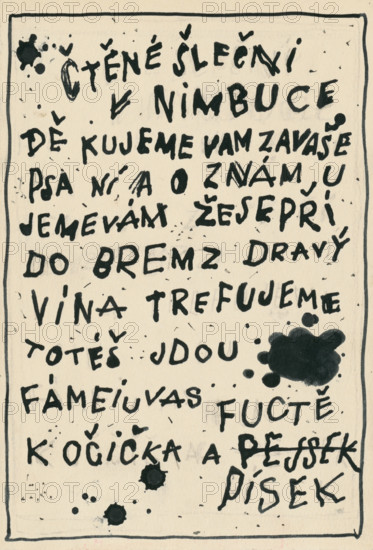 ČTĚNÉ ŠLEČNI
V NIMBUCE
DĚ KUJEME VAM ZAVAŠE
PSA NÍ A O ZNÁM U
JEMEVÁM ŽESEPŘI
DO BREMZ DRAVÝ
VÍNA TREFUJEME
TOTÉŠ JDOU
FÁMEIUVAS FUCTĚ
KOČIČKA A PEJSEK
PÍSEK